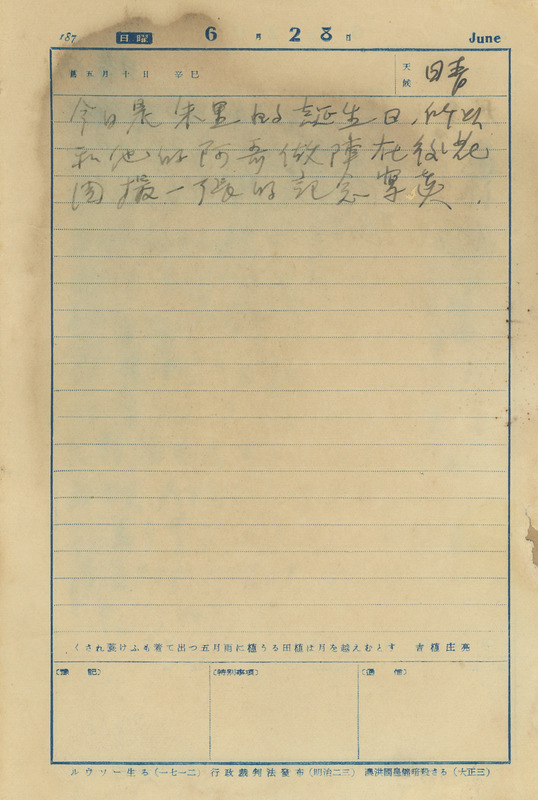 187 日曜 6月28日 June
舊五月十日 辛巳 天候 晴
今日是朱里的誕生日,所以
和他的阿哥做陣在後花
園撮一張的記念寫真.
くされ蓑けふも着て出つ五月雨に植うる田植は月を越えむとす 吉植庄亮
(豫記) (特別事項) (通信)
ルウソー生る(一七一二) 行政裁判法發布(明治二三) 澳洪國皇儲暗殺さる(大正三)